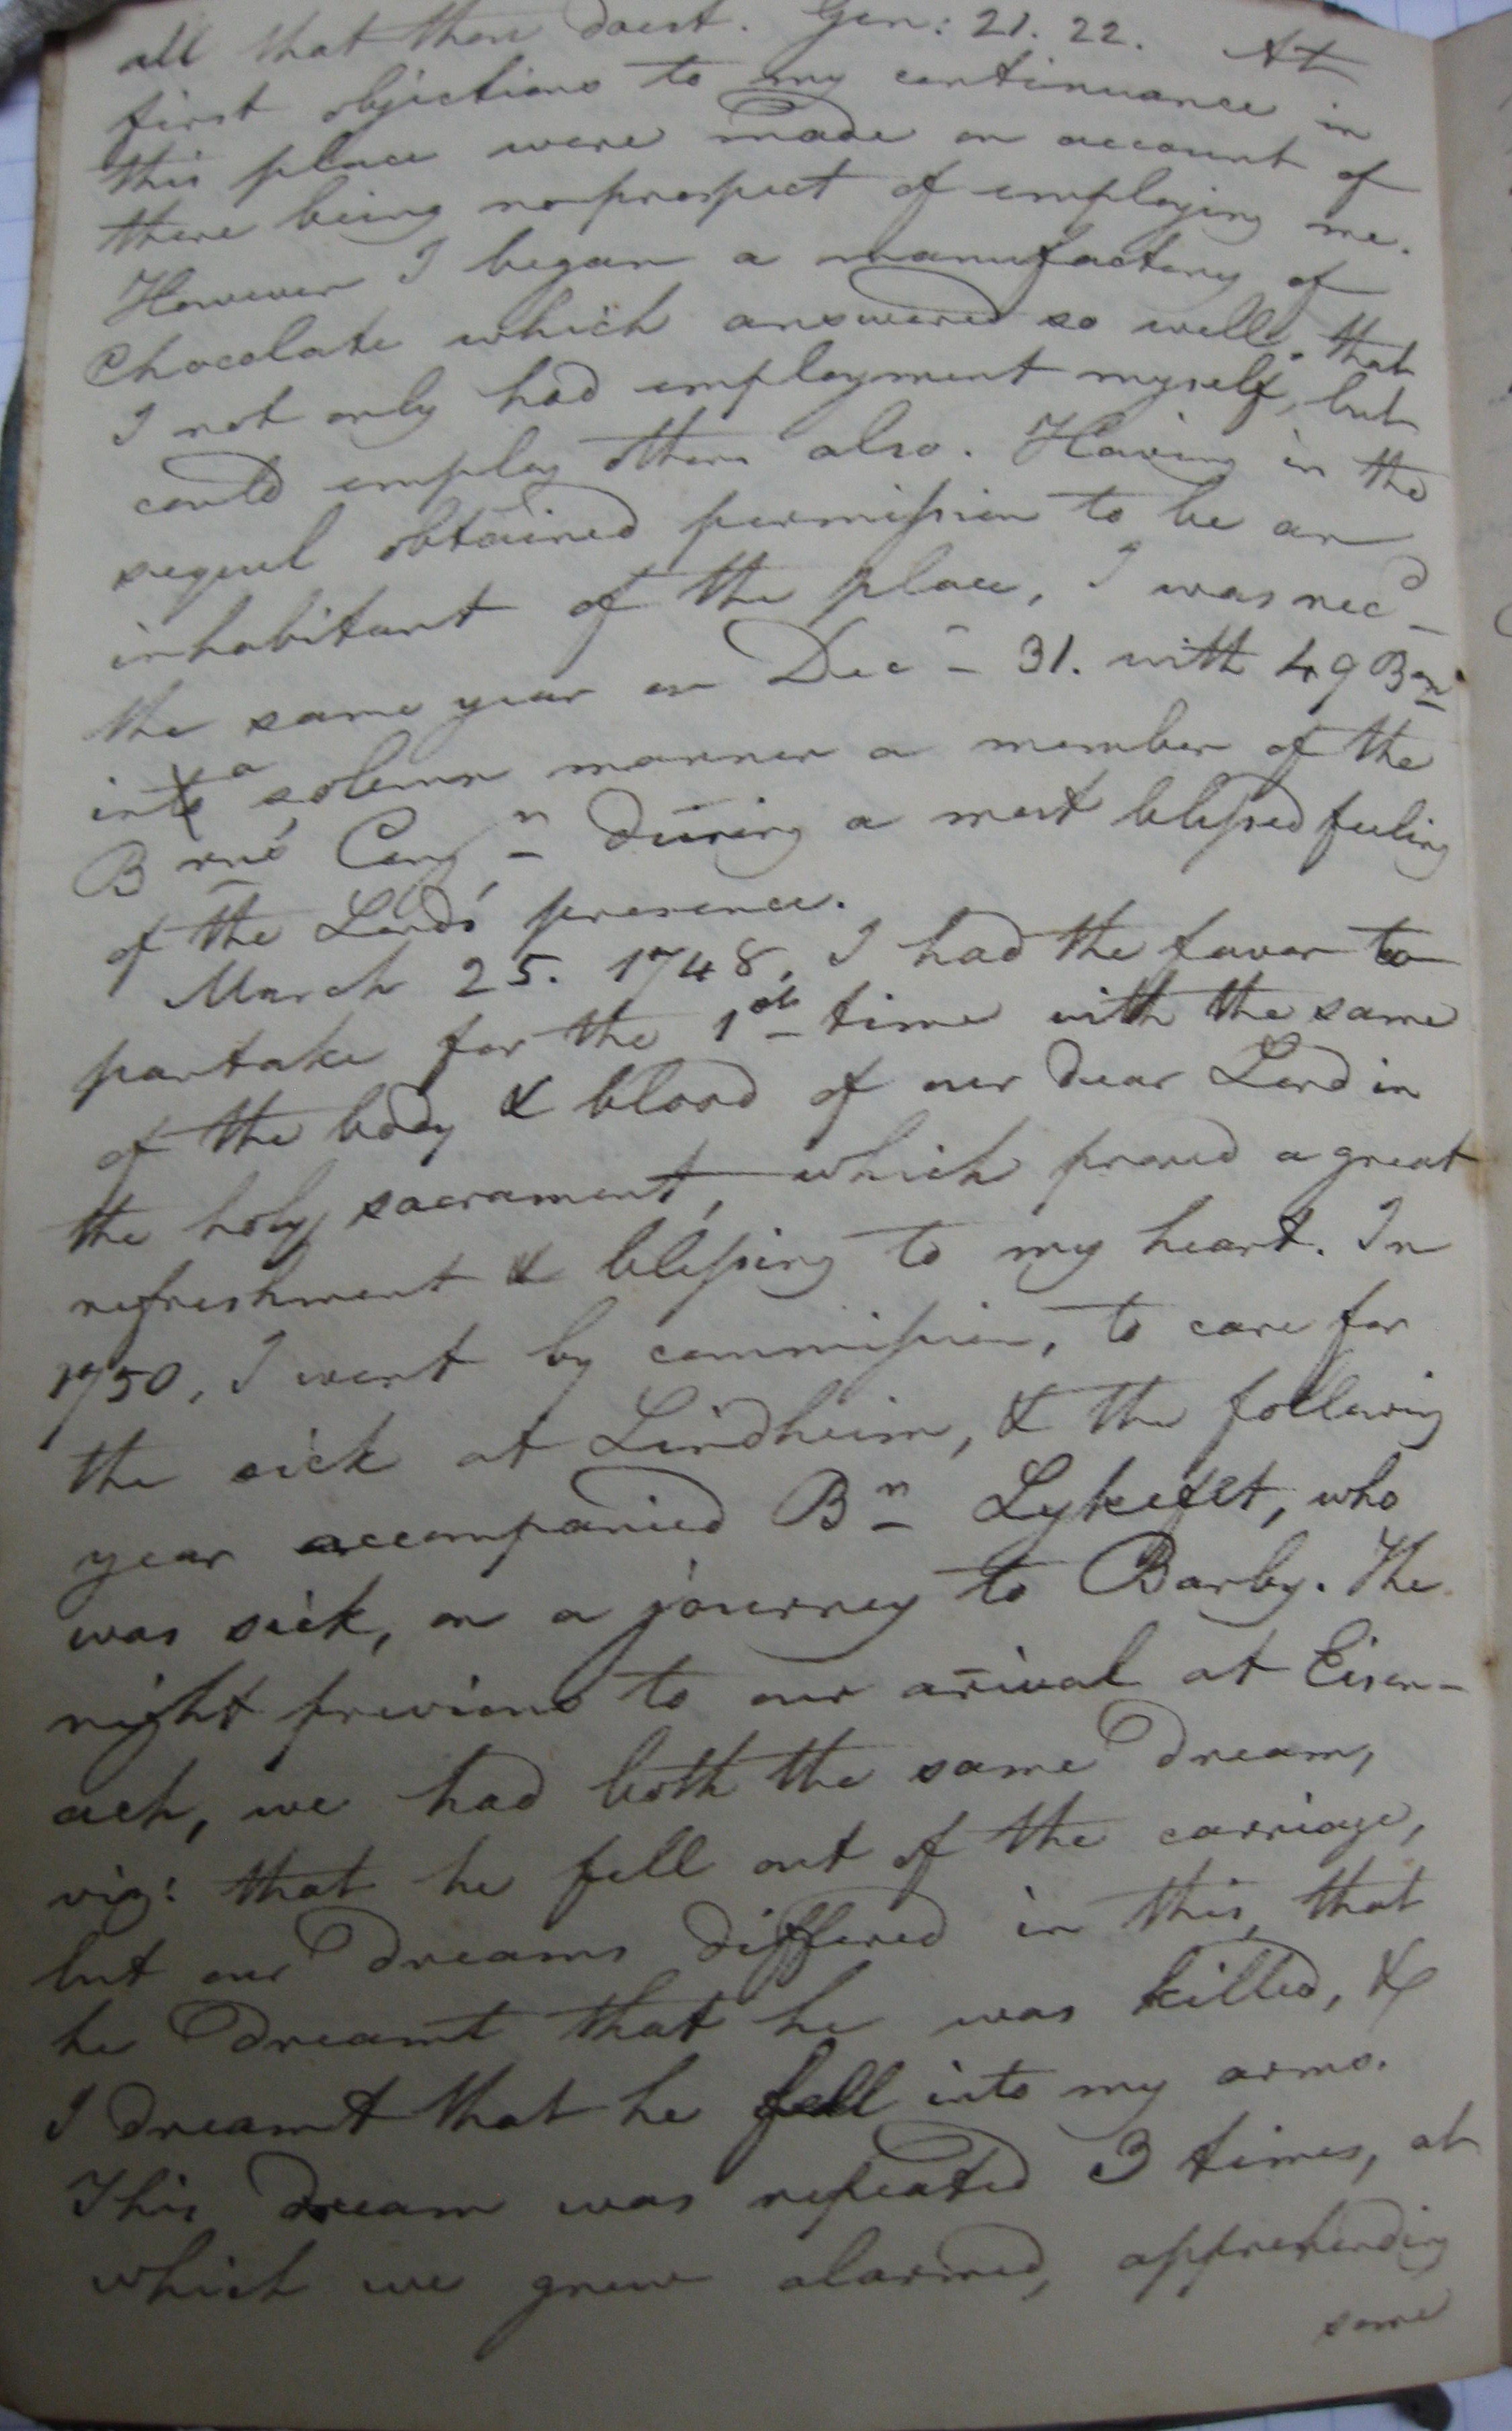 all that thou doest. Gen: 21. 22. At
first objections to my continuance in
this place were made on account of
there being no prospect of employing me.
However I began a manufactory of
Chocolate which answered so well, that
I not only had employment myself, but
could employ others also. Having in the
sequel obtained permission to be an
inhabitant of the place, I was recd
the same year on Decr 31. with 49 Brn
into a solemn manner a member of the
Brns Congn during a most blessed feeling
of the Lords' presence.
March 25. 1748, I had the favor to
partake for the 1st time with the same
of the body & blood of our dear Lord in
the holy sacrament, which proved a great
refreshment & blessing to my heart. In
1750, I went by commission, to care for
the sick at Lindheim, & the following
year accompanied Br, who
was sick, on a journey to Barby. The
night previous to our arival at Eisen-
ach, we had both the same dream,
viz: that he fell out of the carriage,
but our dreams differed in this, that
he dreamt that he was killed, &
I dreamt that he fell into my arms.
This dream was repeated 3 times, at
which we grew alarmed, apprehending
some